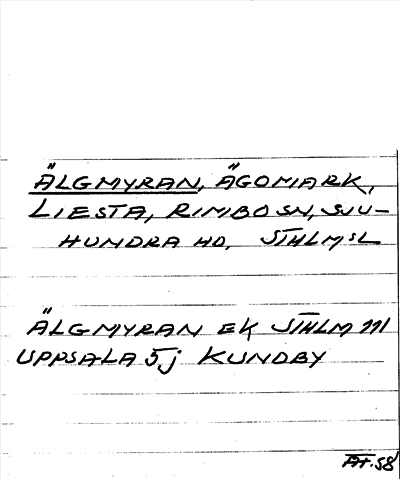 ÄLGMYRAN, ÄGOMARK,
LIESTA, RIMBO SN, SJU-
HUNDRA HD, STHLMSL
ÄLGMYRAN EK STHLM 111
UPPSALA 5j KUNDBY
58